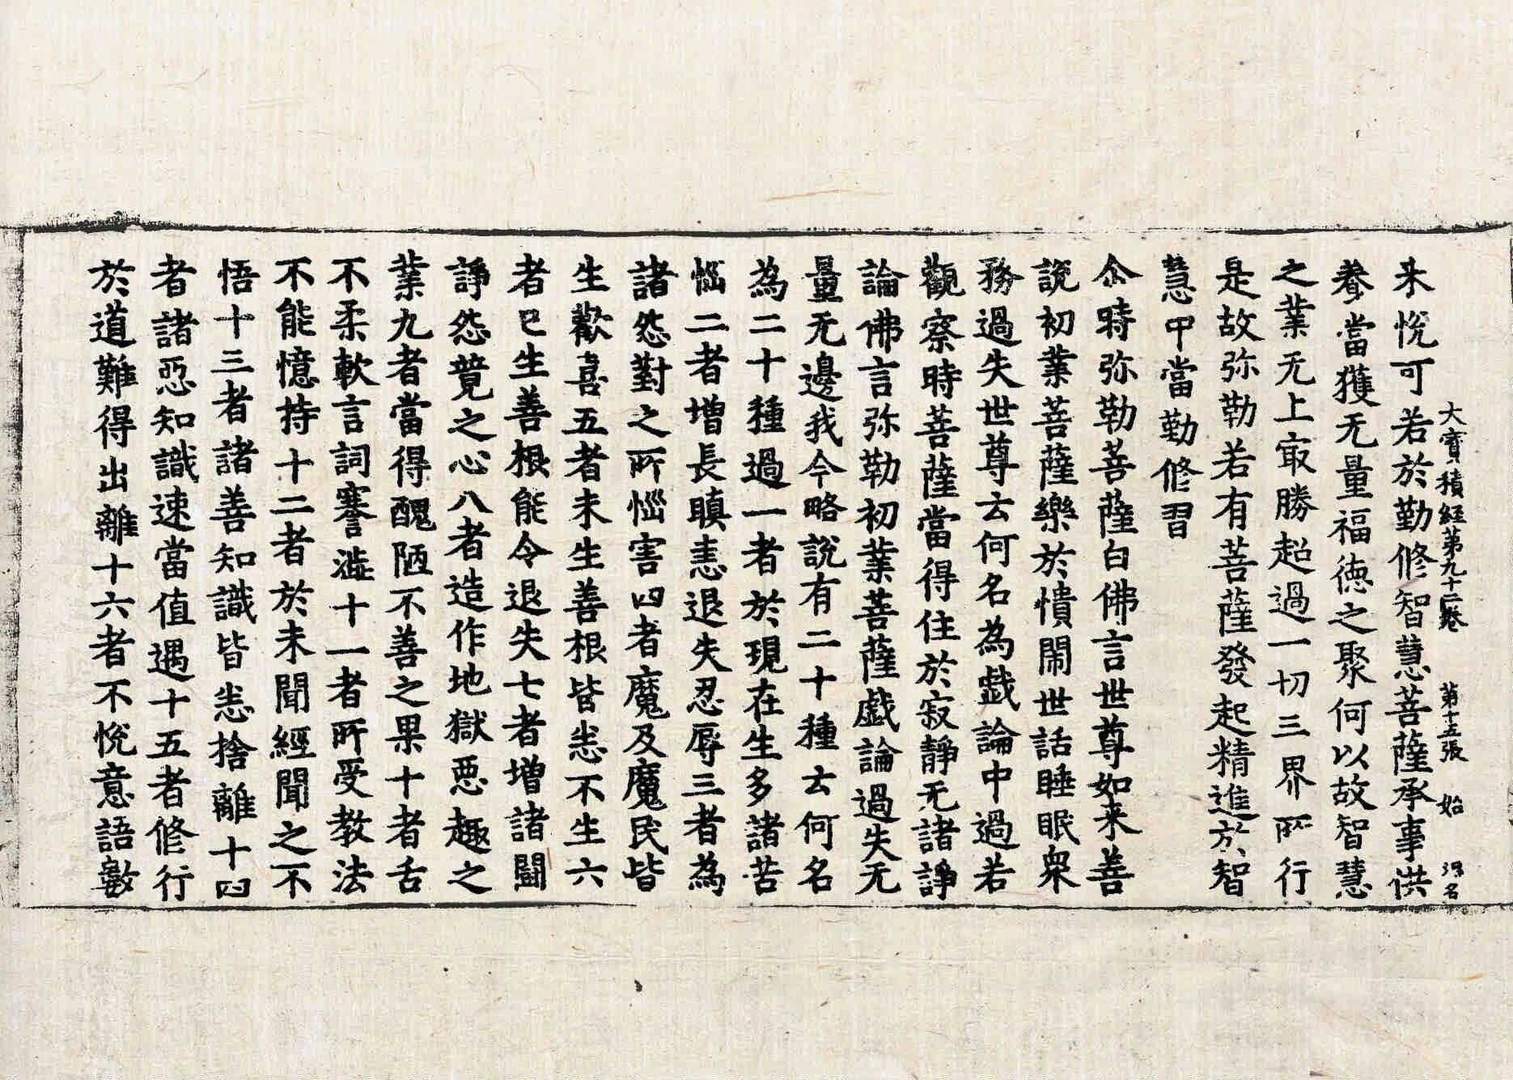 大寶積經第九十二卷 第十五張 始
来悅可若於勤修智慧菩薩承事供
養當獲无量福德之聚何以故智慧
之業无上㝡勝超過一切三界所行
是故弥勒若有菩薩發起精進於智
慧中當勤修習
尒時弥勒菩薩白佛言世尊如来善
說初業菩薩樂於憒閙世話睡眠衆
務過失世尊云何名為戱論中過若
觀察時菩薩當得住於寂靜无諸諍
論佛言弥勒初業菩薩戱論過失无
量无邊我今略說有二十種云何名
為二十種過一者於現在生多諸苦
惱二者增長瞋恚退失忍辱三者為
諸怨對之所惱害四者魔及魔民皆
生歡喜五者未生善根皆悉不生六
者已生善根能令退失七者增諸鬪
諍怨競之心八者造作地獄惡趣之
業九者當得醜陋不善之果十者舌
不柔軟言詞謇澁十一者所受教法
不能憶持十二者於未聞經聞之不
悟十三者諸善知識皆悉捨離十四
者諸惡知識速當值遇十五者修行
於道難得出離十六者不悅意語數